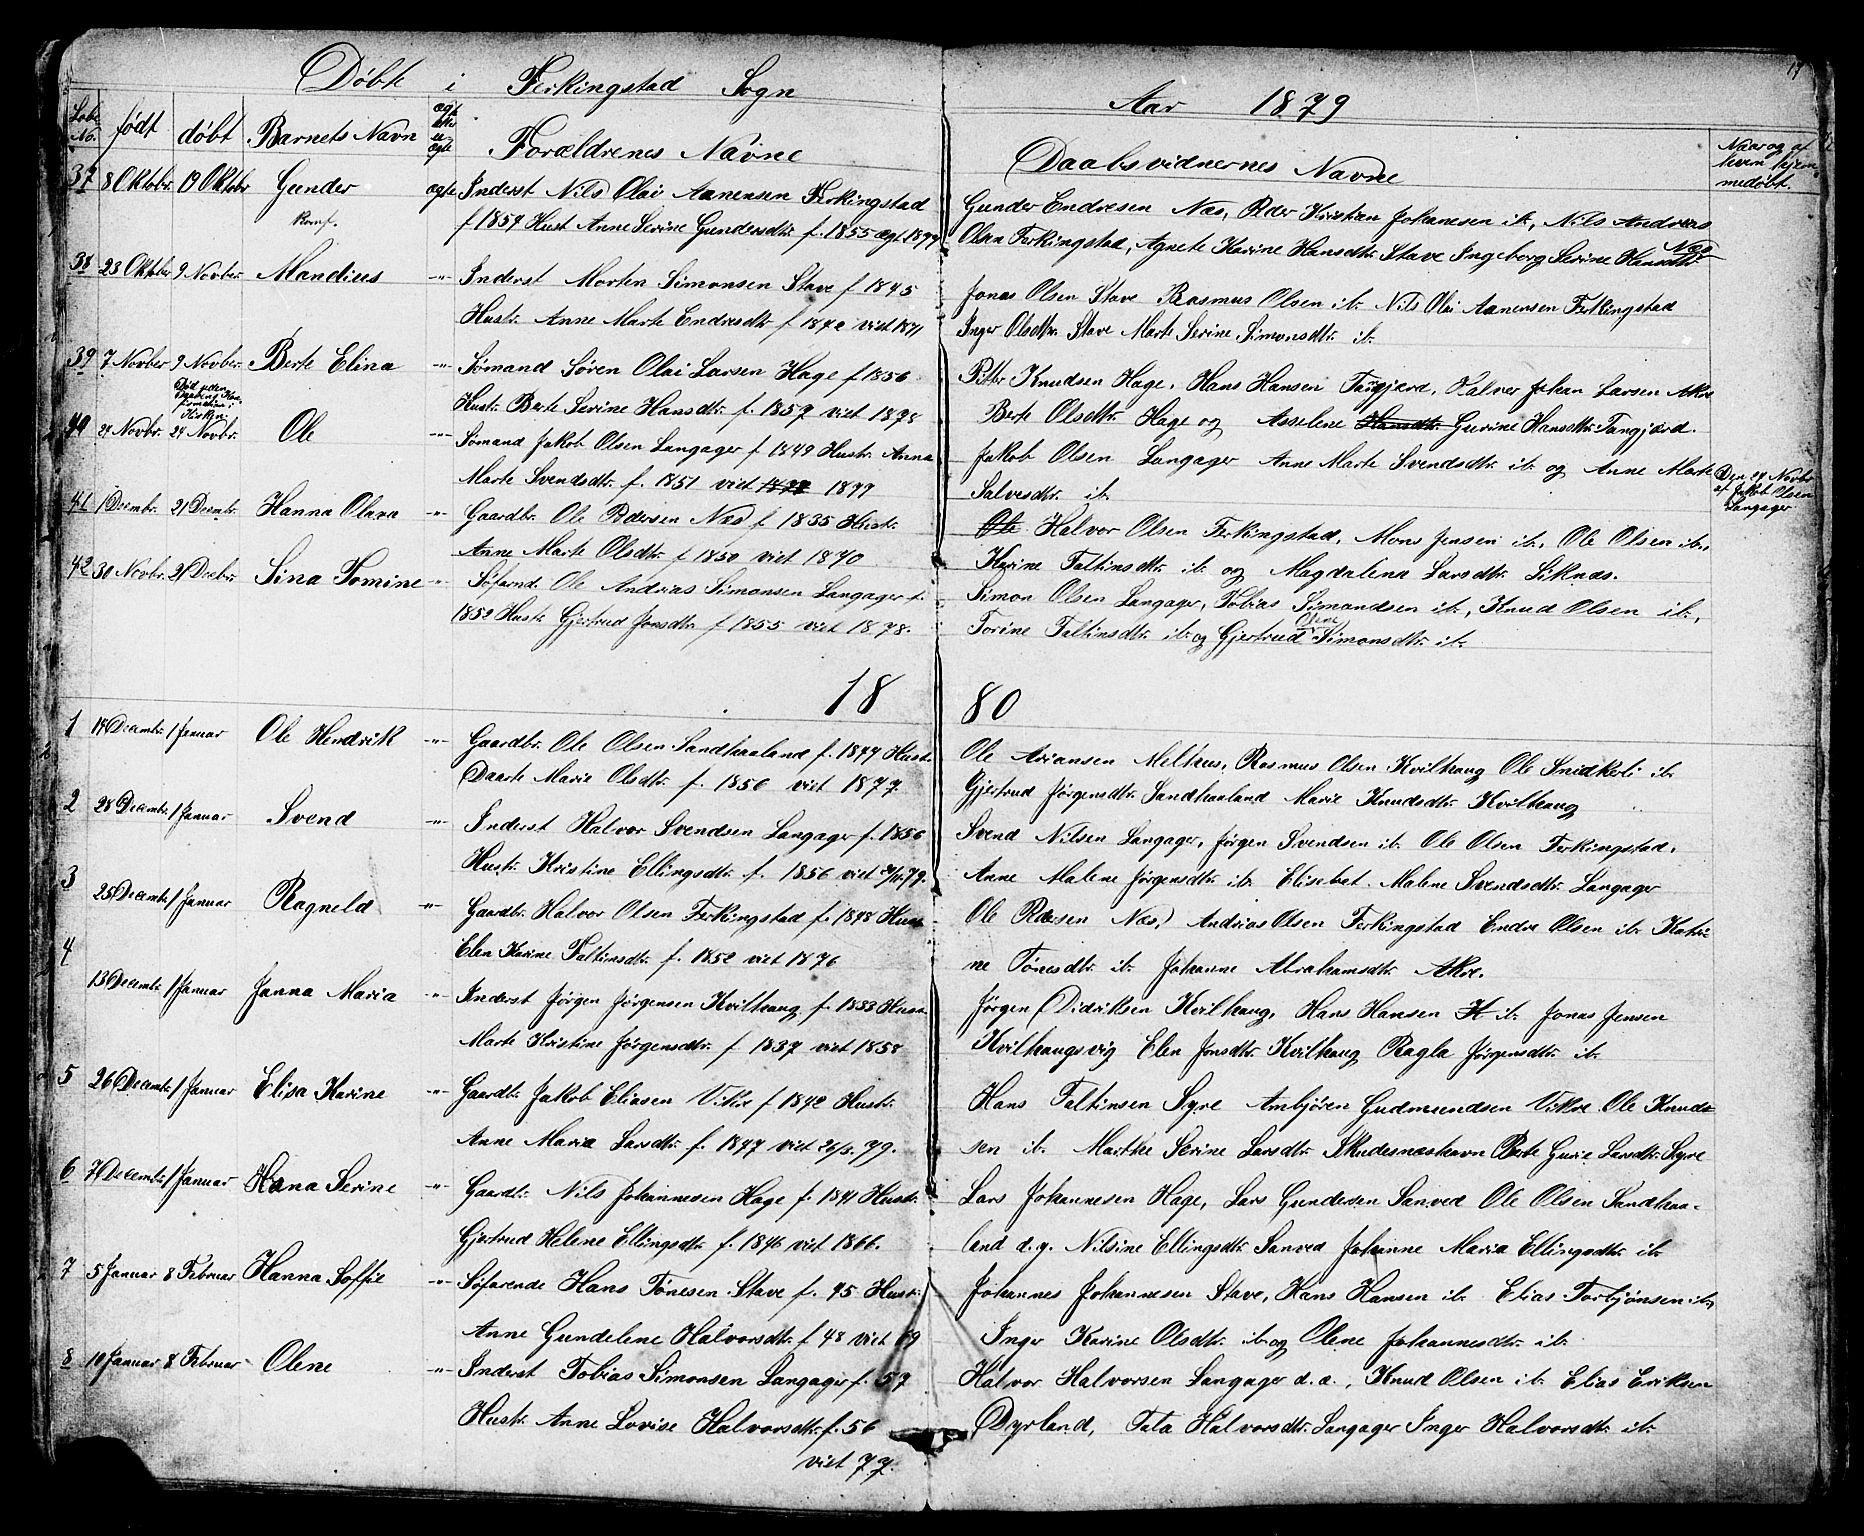 Døbte i Ferkingstad Sogn Aar 1879
17
Løbe No. født døbt Barnets Navn ægte eller uægte Forældrenes Navne Daabsvidnernes Navne Naar og af hvem hjemmedøbt.
37 8 Oktobr. 19 Oktobr Gunder ægte Inderst Nils Olai Aanensen Ferkingstad Gunder Endresen Næs, Peder Kristian Johanesen ib, Nils Andreas
f 1854 Hust Anne Serine Gundersdtr. f. 1855 Olsen Ferkingstad, Agnete Karine Hansdtr Stave Ingeborg Serine Hansdtr. Næs
38 23 Oktobr 9 Novber. Mandius -"- Inderst Morten Simonsen Stave f 1845 Jonas Olsen Stave Rasmus Olsen ib. Nils Olai Aanensen Ferkingstad
Hustr. Anne Marte Endresdtr. f viet 1871 Inger Olsdtr. Stave Marte Serine Simonsdtr ib.
39 7 Novber 9 Novber. Berte Elina -"- Sømand Søren Olai Larsen Hage f 1856 Pitter Knudsen Hage. Hans Hansen Halvor Johan Larsen Akre
Hustr. Berte Serine Hansdtr. f. 1857 viet 1878 Berte Olsdtr. Hage og Asselene Hansdtr. Gurine Hansdtr.
40 24 Novbr. 24 Novbr. Ole -"- Sømand Jakob Olsen Langager f 1849 Hustr. Anna Jakob Olsen Langager Anne Marte Svendsdtr. ib og Anne Marte Den 24 Novbr. af Jakob Olsen Langager
Marte Svendsdtr. f. 1851 viet 1877 Salvesdtr ib
41 1 Decmbr. 21 Decmbr. Hanna Olava -"- Gaardbr. Ole Pedersen Næs f 1835 Hustr. Ole Halvor Olsen Ferkingstad, Mons Jensen ib, Ole Olsen ib,
Anne Marte Olsdtr. f 1850 viet 1870 Karine Faltinsdtr. ib og Magdalena Larsdtr. Liknæs.
42 30 Novbr. 21 Decbr. Sina Tomine -"- Søfarnd. Ole Andreas Simonsen Langager f. Simon Olsen Langager, Tobias Simondsen ib, Knud Olsen ib,
1852 Hustr. Gjertrud Jonsdtr. f 1855 viet 1878. Torine Faltinsdtr. ib og Gjertrud Olene Simonsdtr. ib.
1880
1 14 Decembr. 1 Januar Ole Hendrik -"- Gaardbr. Ole Olsen Sandhaaland f. 1847 Hust. Ole Ariansen Melhus, Rasmus Olsen Kvilhaug Ole ib
Daarte Maria Olsdtr. f. 1850 viet 1877 Gjertrud Jørgensdtr. Sandhaaland Marie Knudsdtr. Kvilhaug
2 28 Decembr. 1 Januar Svend -"- Inderst Halvor Svendsen Langager f. 1856 Svend Nilsen Langager, Jørgen Svendsen ib. Ole Olsen Ferkingstad.
Hustr. Kristine Ellingsdtr. f. 1856 viet 79. Anne Malene Jørgensdtr. ib Elisebet Malene Svendsdtr. Langager
3 25 Decembr. 1 Januar Ragneld -"- Gaardbr. Halvor Olsen Ferkingstad f. 1848 Hust. Ole Pedersen Næs, Andrias Olsen Ferkingstad Endre Olsen ib. Katri-
Elen Karine Faltinsdtr. f. 1852 viet 1876 ne Tønesdtr. ib Johanne Abrahamsdtr Akre.
4 13 Decembr. 1 Januar Janna Maria -"- Inderst Jørgen Jørgensen Kvilhaug f. 1833 Hustr. Jørgen Didriksen Kvilhaug, Hans Hansen ib. Jonas Jensen
Marte Kristine Jørgensdtr. f 1837 viet 1858 Kvilhaugsvig Elen Jonsdtr. Kvilhaug Ragla Jørgensdtr. ib.
5 26 Decembr. 1 Januar Elisa Karine -"- Gaardb. Jakob Eliasen Vikre f 1842 Hustr. Hans Faltinsen Syre Ambjören Gudmundsen Vikre Ole Knud-
Anne Maria Larsdtr. f. 1847 viet 79. sen ib. Marthe Serine Larsdtr. Skudesneshavn Berte Gurie Larsdtr. Syre
6 7 Decembr. 1 Januar Hana Serine -"- Gaardb. Nils Johannesen Hage f. 1841 Hustr. Lars Johannesen Hage, Lars Gundersen Sanved Ole Olsen Sandhaa-
Gjertrud Helene Ellingsdtr. f. 1846 viet 1866. land d.y. Nilsine Ellingsdtr. Sanved Johanne Maria Ellingsdtr. ib.
7 5 Januar 8 Februar Hanna Soffie -"- Søfarende Hans Tönesen Stave f. 45 Hustr. Johannes Johannesen Stave, Hans Hansen ib. Elias Torbjønsen ib,
Anne Gundelene Halvorsdtr. f 48 viet 69 Inger Karine Olsdtr. ib og Olene Johannesdtr ib.
8 10 Januar 8 Februar Olene -"- Inderst Tobias Simonsen Langager f. 57 Halvor Halvorsen Langager d.æ., Knud Olsen ib. Elias Eriksen
Hustr. Anne Lovise Halvorsdtr. f. 56 Dyrland, Tala Halvorsdtr. Langager Inger Halvorsdtr. ib.
viet 77.